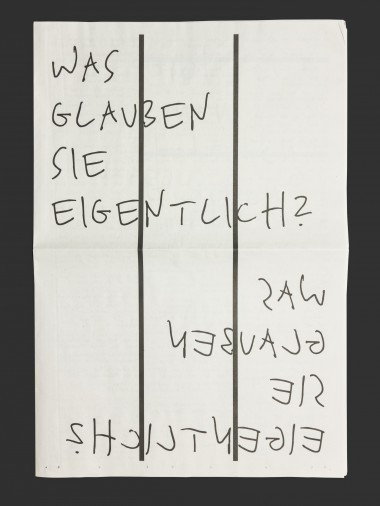 WAS
GLAUBEN
SIE
EIGENTLICH?
WAS
GLAUBEN
SIE
EIGENTLICH?